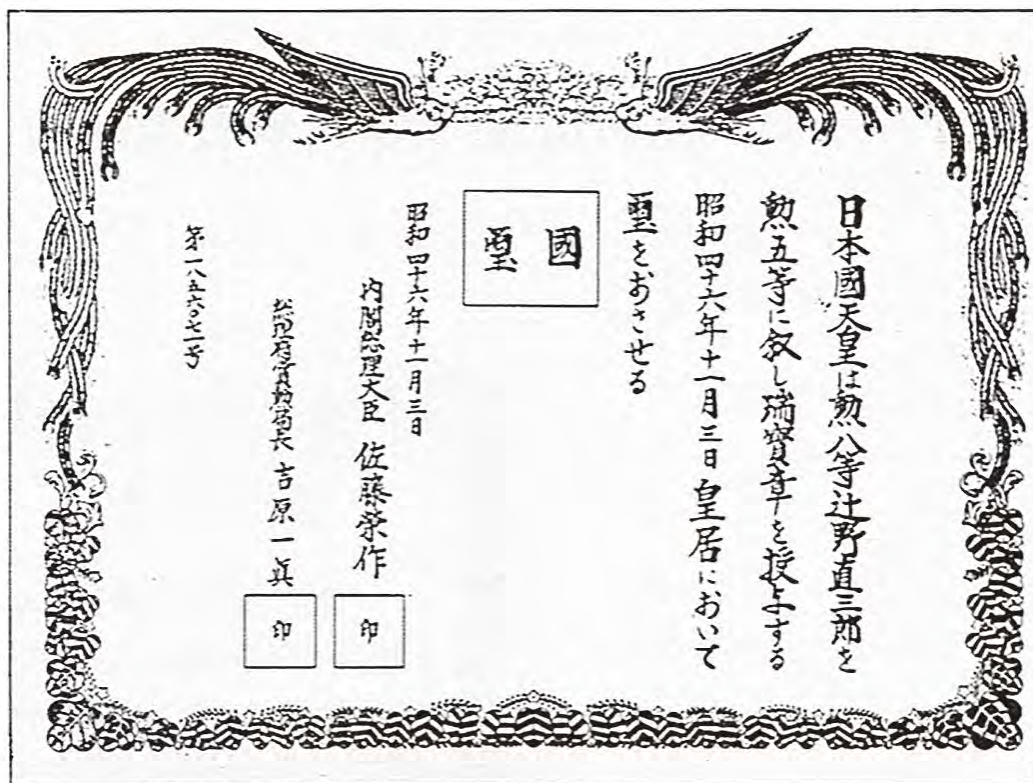 日本國天皇は勲八等辻野直三郎を
勲五等に叙し瑞寶章を授与する
昭和四十六年十一月三日皇居において
璽をおさせる
國璽
昭和四十六年十一月三日
内閣総理大臣 佐藤榮作 印
総理府賞勲局長 吉原一眞 印
第一八五六〇七一号